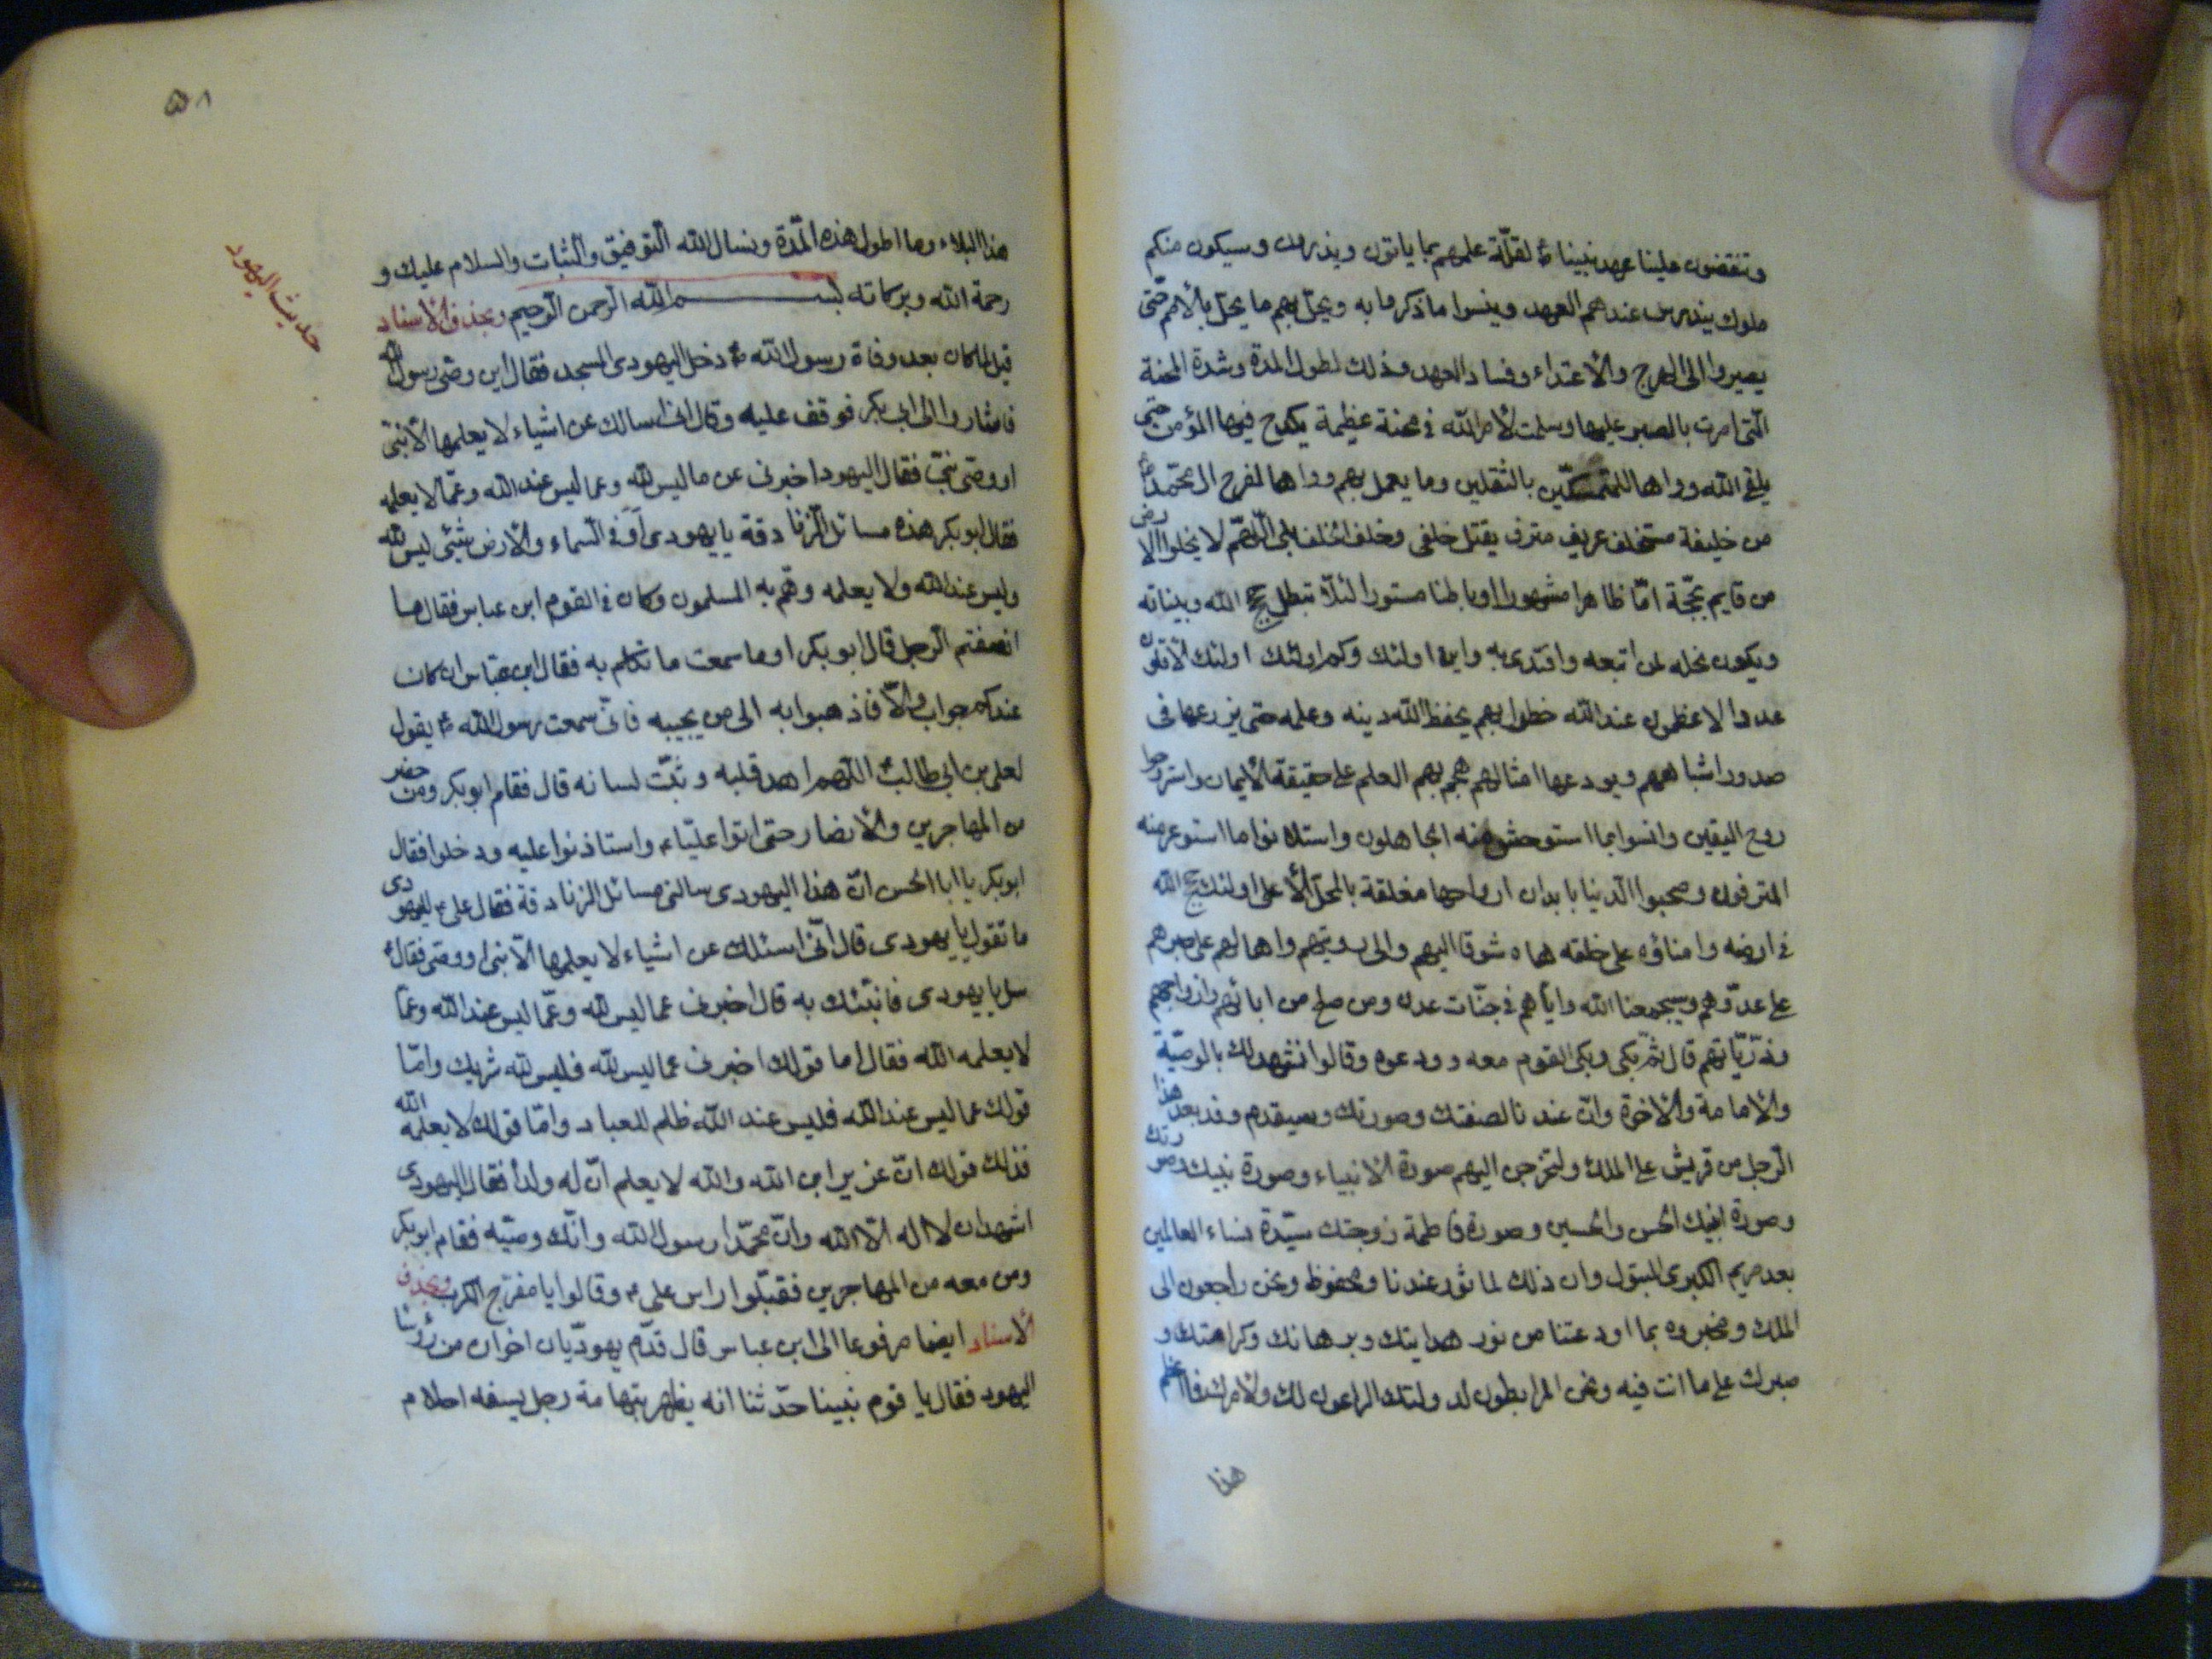 وتنقضون علينا عهد نبينا ص لقلة علمهم بما ياتون ويذرون وسيكون منكم
ملوك يندرس عندهم العهد وينسوا ما ذكروا به ويحل بهم ما يحل بالامم حتى
يصيروا الى الهرج والاعتداء وفساد العهد وذلك لطول المدة وشدة المحنة
التى امرت بالصبر عليها وسلمت لامر الله فى محنة عظيمة يكدح فيها المؤمن حتى
يلقى الله وواها للمتمسكين بالثقلين وما يعمل بهم وواها لفرج ال محمد
من خليفة مستخلف عريف مترف يقتل خلفى وخلف الخلف بلى اللهم لا يخلوا الارض
من قايم بحجة اما ظاهرا مشهورا او باطنا مستورا لئلا تبطل حجج الله وبيناته
ويكون نحله لمن اتبعه واقتدى به واين اولئك وكم اولئك اولئك الاقلون
عددا الاعظمون عند الله خطرا بهم يحفظ الله دينه وعلمه حتى يزرعها فى
صدور اشباههم ويودعها امثالهم هجم بهم العلم على حقيقة الايمان واستروحوا
روح اليقين وانسوا بما استوحش منه الجاهلون واستلانوا ما استوعر منه
المترفون وصحبوا الدنيا بابدان ارواحها معلقة بالمحل الاعلى اولئك حجج الله
فى ارضه وامناؤه على خلقه هاه شوقا اليهم والى رويتهم واها لهم على صبرهم
على عدوهم وسيجمعنا الله واياهم فى جنات عدن ومن صلح من ابائهم وازواجهم
وذرياتهم قال ثم بكى وبكى القوم معه وودعوه وقالوا نشهد لك بالوصية
والامامة والاخوة وان عندنا لصفتك وصورتك وسيقدم وفد بعد هذا
الرجل من قريش على الملك ولتخرجن اليهم صورة الانبياء وصورة نبيك وصورتك
وصورة ابنيك الحسن والحسين وصورة فاطمة زوجتك سيدة نساء العالمين
بعد مريم الكبرى البتول وان ذلك لماثور عندنا ومحفوظ ونحن راجعون الى
الملك ومخبروه بما اودعتنا من نور هدايتك وبرهانك وكرامتك و
صبرك على ما انت فيه ونحن المرابطون لدولتك الداعون لك ولامرك فما اعظم
هذا
٥٨
حديث اليهود
هذا البلاء وما اطول هذه المدة ونسال الله التوفيق والثبات والسلام عليك و
رحمة الله وبركاته بسم الله الرحمن الرحيم وبحذف الاسناد
قيل لما كان بعد وفاة رسول الله ص دخل اليهودى المسجد فقال اين وصى رسول الله
فاشاروا الى ابى بكر فوقف عليه وقال انى اسالك عن اشياء لا يعلمها الا نبى
او وصى نبى فقال اليهود اخبرنى عن ما ليس لله وعما ليس عند الله وعما لا يعلمه
فقال ابو بكر هذه مسائل الزنادقة يا يهودى أو فى السماء والارض شئ ليس لله
وليس عند الله ولا يعلمه وهم به المسلمون وكان فى القوم ابن عباس فقال ما
انصفتم الرجل قال ابو بكر او ما سمعت ما تكلم به فقال ابن عباس ان كان
عندكم جواب والا فاذهبوا به الى من يجيبه فانى سمعت رسول الله ص يقول
لعلى بن ابى طالب اللهم اهد قلبه وثبت لسانه قال فقام ابو بكر ومن حضر
من المهاجرين والانصار حتى اتوا عليا ع واستاذنوا عليه ودخلوا فقال
ابو بكر يا ابا الحسن ان هذا اليهودى سالنى مسائل الزنادقة فقال على ع لليهودى
ما تقول يا يهودى قال انى اسئلك عن اشياء لا يعلمها الا نبى او وصى فقال
سل يا يهودى فانبئك به قال اخبرنى عما ليس لله وعما ليس عند الله وعما
لا يعلمه الله فقال اما قولك اخبرنى عما ليس لله فليس لله شريك واما
قولك عما ليس عند الله فليس عند الله ظلم للعباد واما قولك لا يعلمه الله
فذلك قولك ان عزير ابن الله والله لا يعلم ان له ولدا فقال اليهودى
اشهد ان لا اله الا الله وان محمدا رسول الله وانك وصيه فقام ابو بكر
ومن معه من المهاجرين فقبلوا راس على ع وقالوا يا مفرج الكرب وبحذف
الاسناد ايضا مرفوعا الى ابن عباس قال قدم يهوديان اخوان من رؤسا
اليهود فقال يا قوم نبينا حدثنا انه يظهر بتهامة رجل يسفه احلام